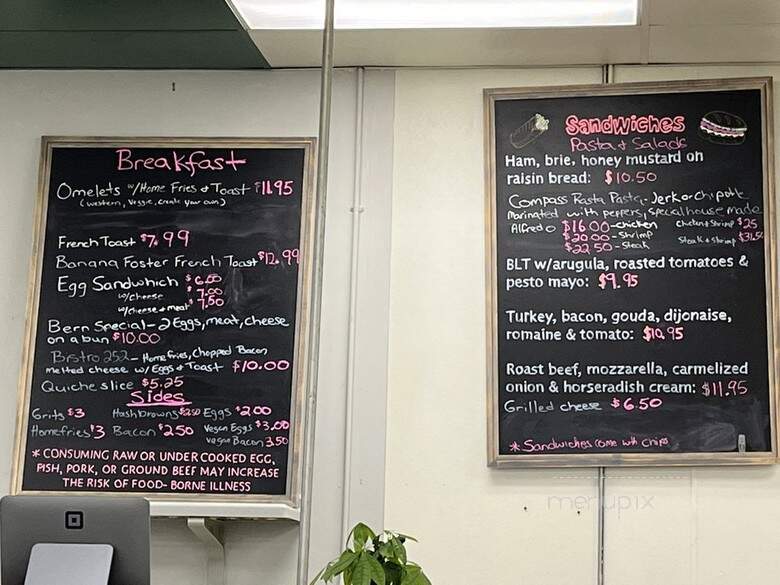 Breakfast
Omelets w/Home Fries & Toast $11.95
(western, Veggie, create your own)
French Toast $7.99
Banana Foster French Toast $12.99
Egg Sandwhich $6.00
w/cheese 7.00
w/cheese + meat $7.50
Bern Special - 2 Eggs, meat, cheese
on a bun $10.00
Bistro 252 - Home fries, Chopped Bacon
melted cheese w/ Eggs & Toast $10.00
Quiche slice $5.25
Sides
Grits $3 Hashbrowns $2.50 Eggs $2.00
Homefries $3 Bacon $2.50 Vegan Eggs $3.00
vegan Bacon 3.50
* CONSUMING RAW OR UNDER COOKED EGG,
PISH, PORK, OR GROUND BEEF MAY INCREASE
THE RISK OF FOOD- BORNE ILLNESS
Sandwiches
Pasta & Salads
Ham, brie, honey mustard on
raisin bread: $10.50
Compass Rasta Pasta - Jerk or chipotle
Marinated with peppers, special house made
Alfredo $16.00 - chicken Chicken & Shrimp $25
$20.00 - Shrimp Steak & shrimp $31.50
$22.50 - Steak
BLT w/arugula, roasted tomatoes &
pesto mayo: $9.95
Turkey, bacon, gouda, dijonaise,
romaine & tomato: $10.95
Roast beef, mozzarella, carmelized
onion & horseradish cream: $11.95
Grilled cheese $6.50
* Sandwiches come with chips
menupix